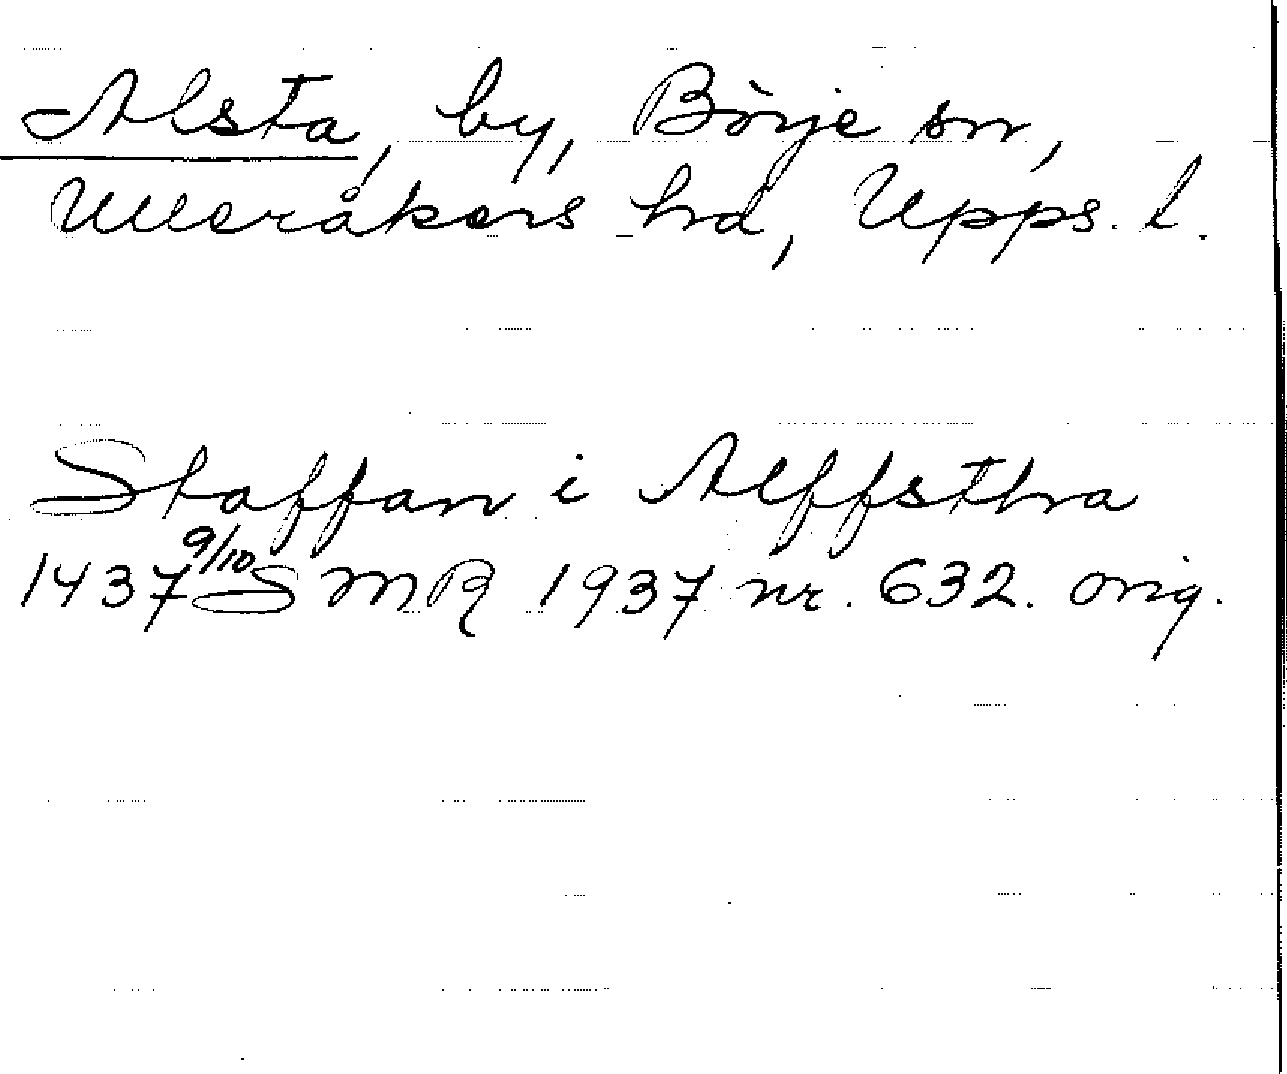 Alsta, by, Börje sn,
Ulleråkers hd, Upps. l.
Staffan i Alffstha
1437 9/10 SMR 1937 nr. 632. orig.